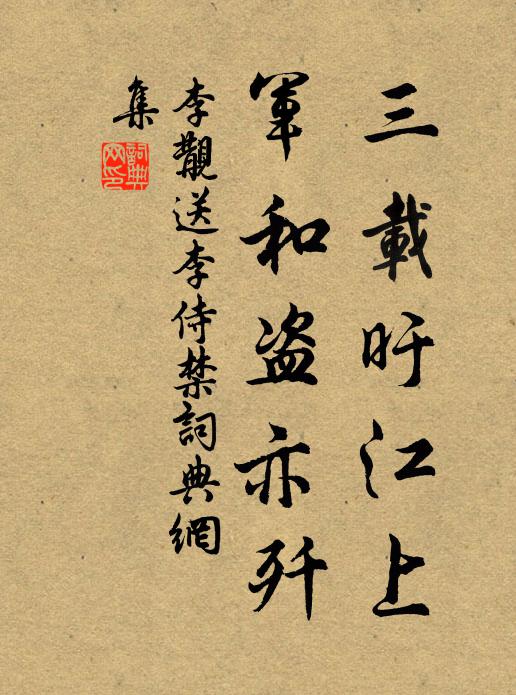 三載旴江上
軍和盗亦歼
李觀送李侍禁詞典網
集
詞典
网印